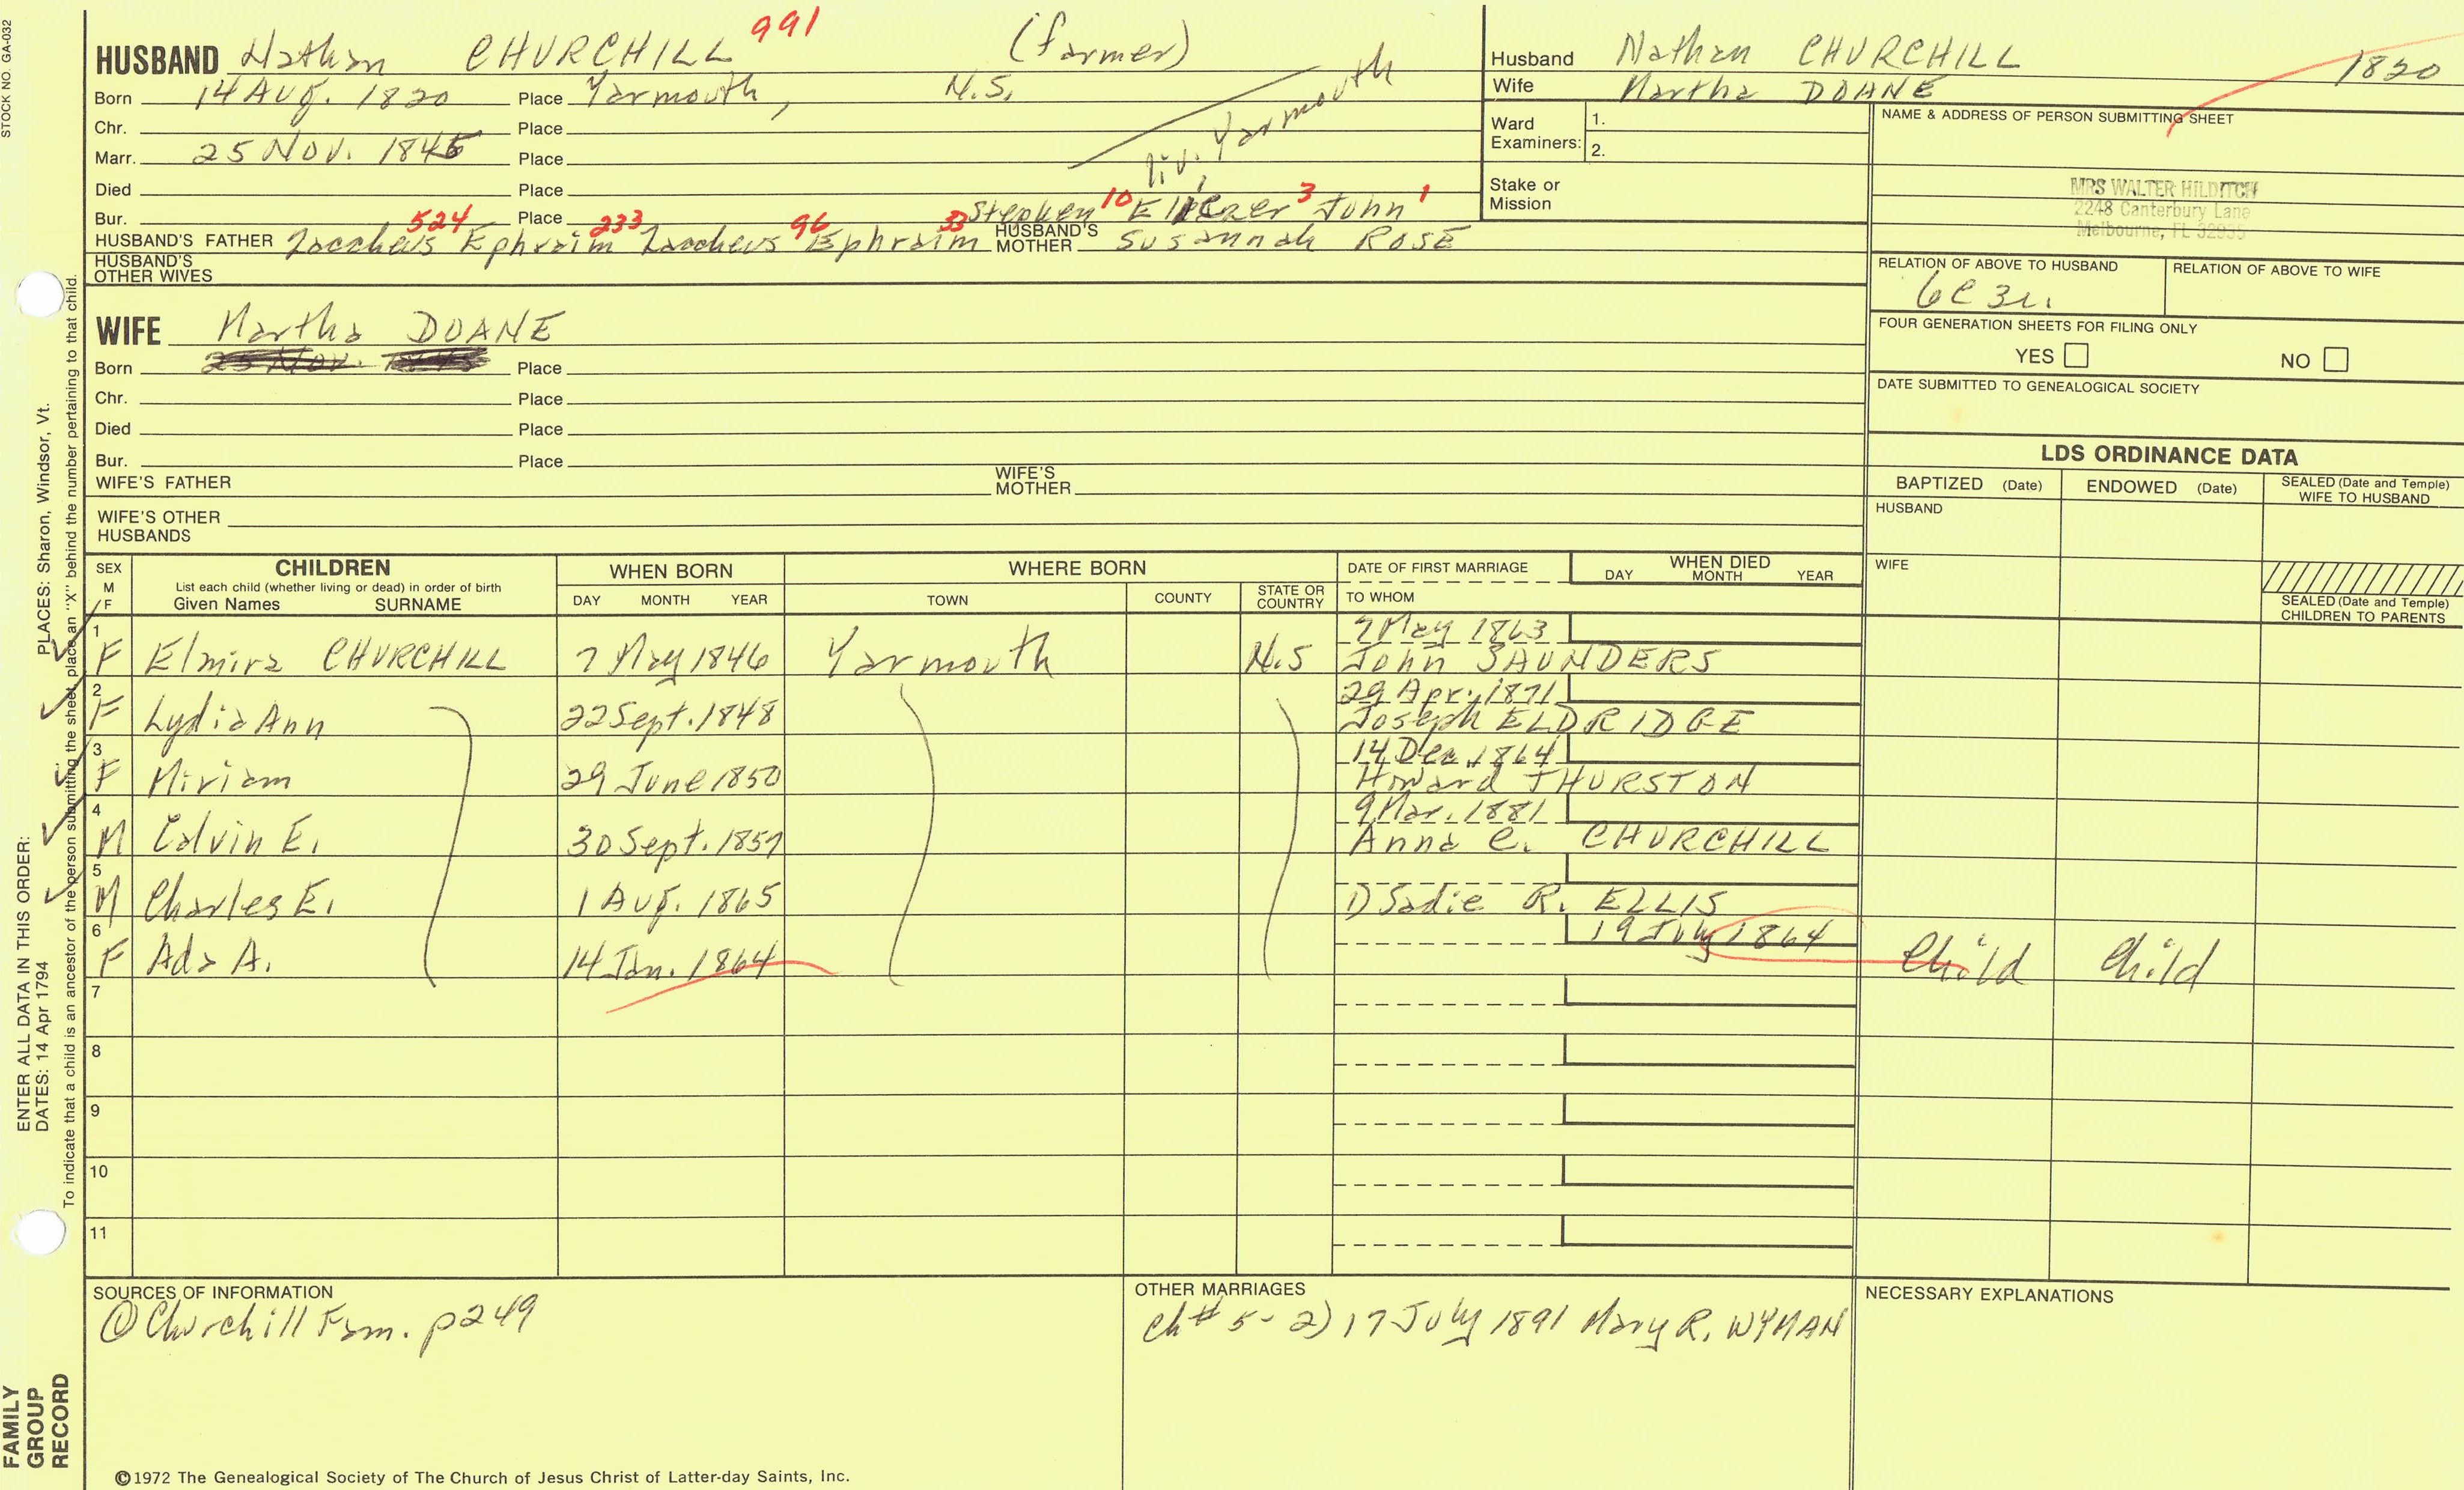 STOCK NO. GA-032
HUSBAND Nathan CHURCHILL 991 (farmer)
Born 14 Aug. 1820 Place Yarmouth, N.S.
Chr. Place
Marr. 25 Nov. 1845 Place
liv. Yarmouth
Died Place
Bur. Place
524 233 96 33 Stephen 10 Eliezer 3 John 1
HUSBAND'S FATHER Zaccheus Ephraim Zaccheus Ephraim HUSBAND'S MOTHER Susannah ROSE
HUSBAND'S OTHER WIVES
Husband Nathan CHURCHILL 1820
Wife Martha DOANE
Ward Examiners: 1.
2.
Stake or Mission
NAME & ADDRESS OF PERSON SUBMITTING SHEET
MRS WALTER HILDITCH
2248 Canterbury Lane
Melbourne, FL 32935
RELATION OF ABOVE TO HUSBAND RELATION OF ABOVE TO WIFE
6C3r.
FOUR GENERATION SHEETS FOR FILING ONLY
YES NO
DATE SUBMITTED TO GENEALOGICAL SOCIETY
WIFE Martha DOANE
Born Place
Chr. Place
Died Place
Bur. Place
WIFE'S FATHER WIFE'S MOTHER
WIFE'S OTHER HUSBANDS
LDS ORDINANCE DATA
BAPTIZED (Date) ENDOWED (Date) SEALED (Date and Temple) WIFE TO HUSBAND
HUSBAND
WIFE
SEALED (Date and Temple) CHILDREN TO PARENTS
SEX M/F CHILDREN WHEN BORN WHERE BORN DATE OF FIRST MARRIAGE WHEN DIED
List each child (whether living or dead) in order of birth
Given Names SURNAME DAY MONTH YEAR TOWN COUNTY STATE OR COUNTRY TO WHOM DAY MONTH YEAR
1 7 May 1863
F Elmira CHURCHILL 7 May 1846 Yarmouth N.S John SAUNDERS
2 29 Apr. 1871
F Lydia Ann 22 Sept. 1848 Joseph ELDRIDGE
3 14 Dec. 1864
F Miriam 29 June 1850 Howard THURSTON
4 9 Mar. 1881
M Calvin E. 30 Sept. 1857 Anna C. CHURCHILL
5
M Charles E. 1 Aug. 1865 1) Sadie R. ELLIS
6 19 July 1864
F Ada A. 14 Jan. 1864 Child Child
7
8
9
10
11
SOURCES OF INFORMATION
① Churchill Fam. p249
OTHER MARRIAGES
Ch # 5- 2) 17 July 1891 Mary R. WYMAN
NECESSARY EXPLANATIONS
©1972 The Genealogical Society of The Church of Jesus Christ of Latter-day Saints, Inc.
FAMILY GROUP RECORD
ENTER ALL DATA IN THIS ORDER:
DATES: 14 Apr 1794
PLACES: Sharon, Windsor, Vt.
To indicate that a child is an ancestor of the person submitting the sheet, place an "X" behind the number pertaining to that child.